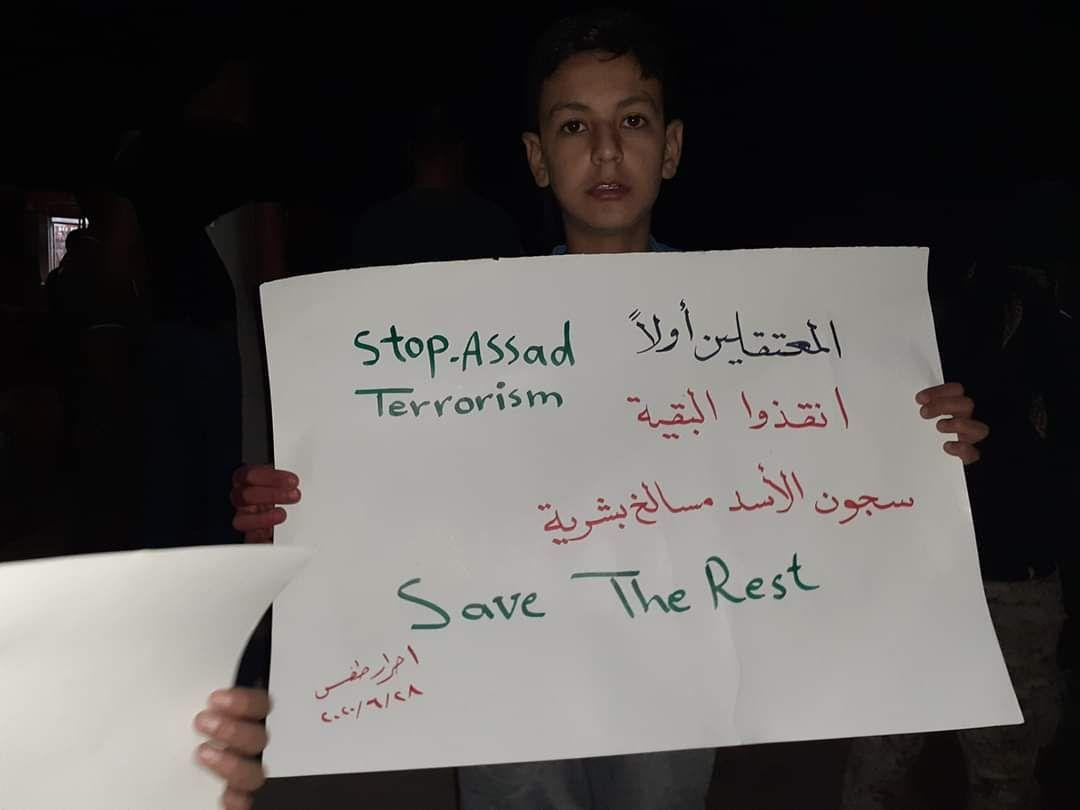 المعتقلين أولاً
Stop-Assad
Terrorism
انقذوا البقية
سجون الأسد مسالخ بشرية
Save The Rest
احرار طفس
٢٠٢٠/٦/٢٨